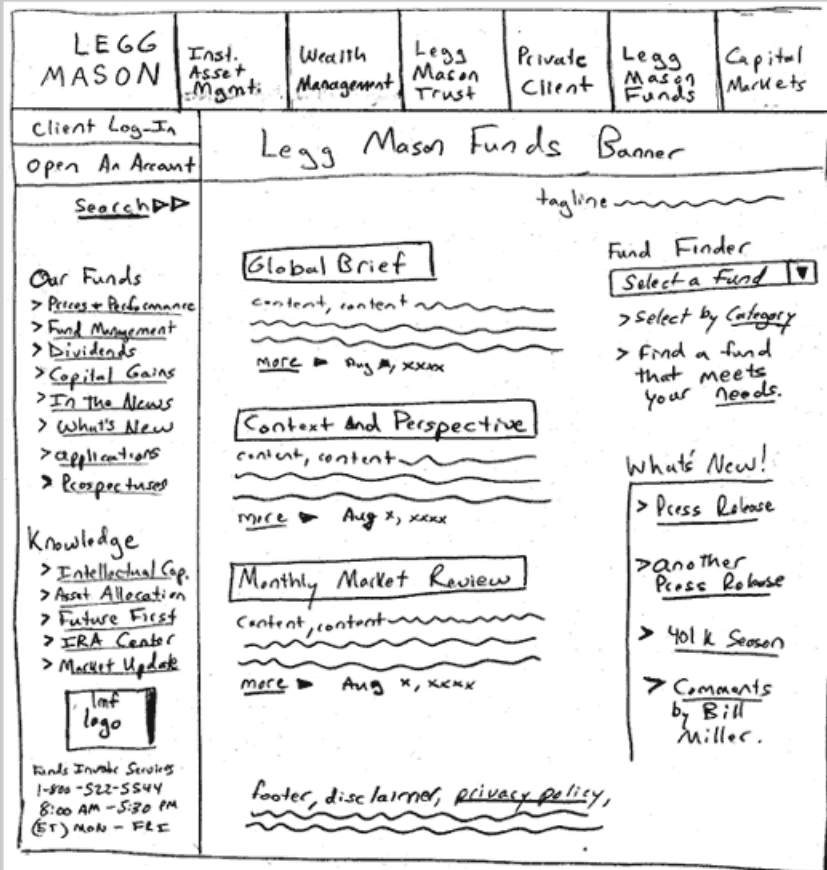 LEGG
MASON
Inst.
Asset
Mgmti
Wealth
Management
Legg
Mason
Trust
Private
Client
Legg
Mason
Funds
Capital
Markets
Client Log-In
Open An Account
Legg Mason Funds Banner
Search
tagline
Our Funds
> Prices + Performance
> Fund Mungement
> Dividends
> Capital Gains
> In The News
> What's New
> applications
> Prospectuses
Knowledge
> Intellectual Cap.
> Asset Allocation
> Future First
> IRA Center
> Market Update
lmf
logo
Funds Investor Services
1-800-522-5544
8:00 AM - 5:30 PM
(ET) MON - FRI
Global Brief
content, content
more ► Aug x, xxxx
Context And Perspective
content, content
more ► Aug x, xxxx
Monthly Market Review
Content, content
more ► Aug x, xxxx
Fund Finder
Select a Fund ▼
> Select by Category
> Find a fund
that meets
your needs.
What's New!
> Press Release
> another
Press Release
> 401 k Season
> Comments
by Bill
Miller.
footer, disclaimer, privacy policy,